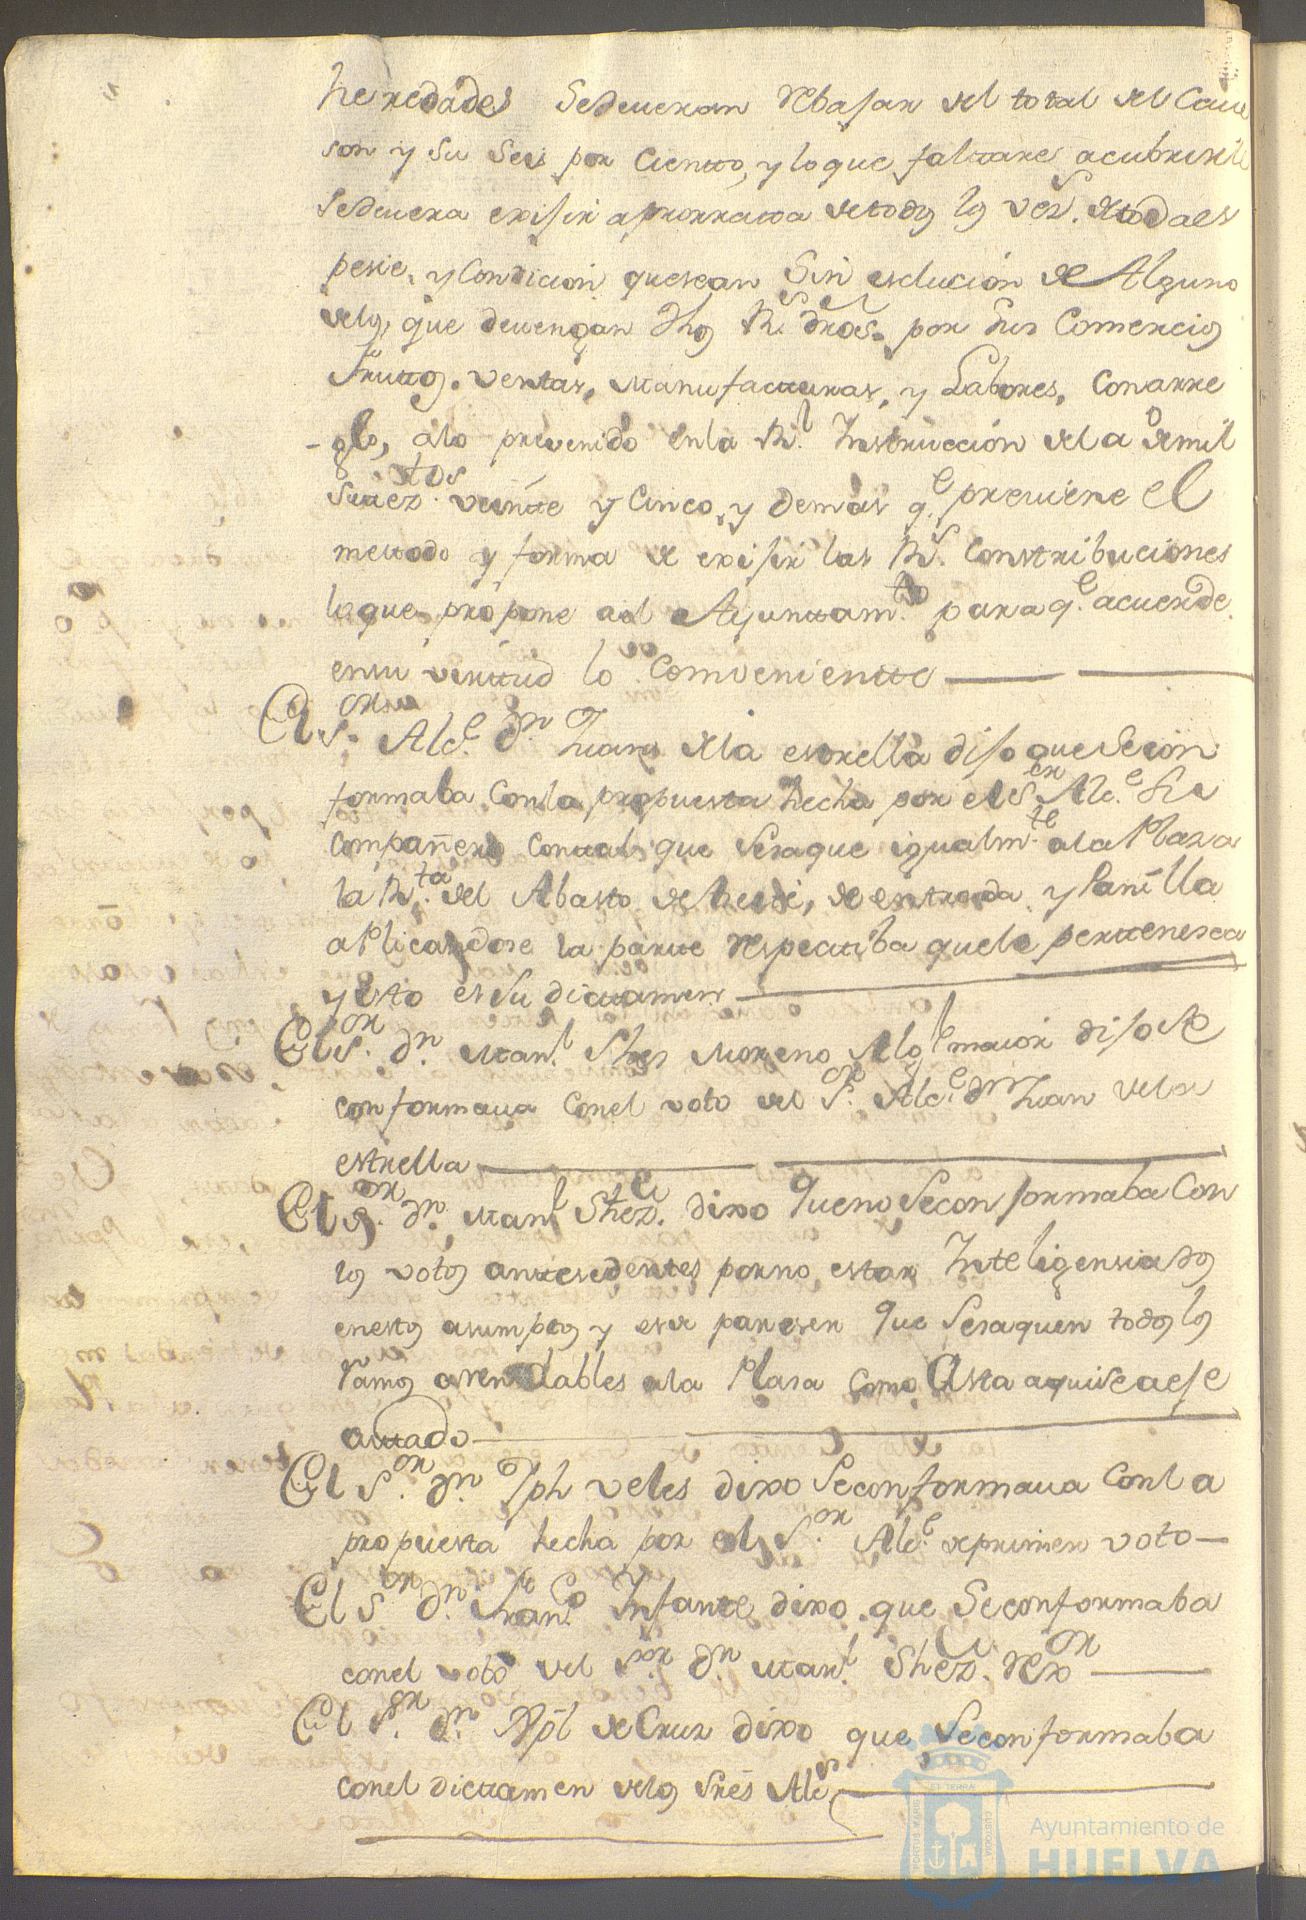 heredades Sedeveran Rebajar del total del Cave
son y su Seis por Ciento, y lo que faltare acubrirle
Sedevera exijir aprorrata detodos los vez.s de toda es
pesie, y Condicion quesean Sin esclucion de Alguno
delos, que devengan dhos R.s dros. por Sus Comercios
frutos. ventas, Manufacturas, y Labores, Conarre
-glo, alo prevenido enla R.l Instruccion dela de mil
Setez.tos veinte y Cinco, y demas q.e previene el
metodo y forma de exijir las R.s Contribuciones
loque propone ael Ayuntam.to paraq.e acuerde
ensu virttud lo Comveniente
El S.or Alc.e d.n Juan dela estrella dijo que Secon
formaba Conla propuesta hecha por el S.or Alc.e Su
Compañero contal que Sesaque igualm.te ala Plaza
la R.ta del Abasto de hesde, de entrada y Panilla
aPlicandose la parte Respectiba quele pertenesca
y esto es Su dictamen
El S.or d.n Man.l Shes Moreno Alg.l maior dijo Se
conformava Conel voto del S.or Alc.e d.n Juan dela
estrella
El S.or d.n Man.l Shez. dixo Queno Secon formaba Con
los votos antesedentes porno estar Inteligensiados
enestos asumptos y esde pareser Que Sesaquen todos los
Ramos arendables ala Plasa Como Asta aquiseaese
cutado
El S.or d.n Jph veles dixo Seconformava Conla
propuesta hecha por el S.or Alc.e deprimer voto
El S.or d.n Fran.co Infante dixo que Seconformaba
conel voto del S.or d.n Man.l Shez. Rex.or
El S.or d.n Xptl deCruz dixo que Seconformaba
conel dictamen delos Sres Alc.s
PORTUS MARIS ET TERRÆ CUSTODIA
Ayuntamiento de
HUELVA